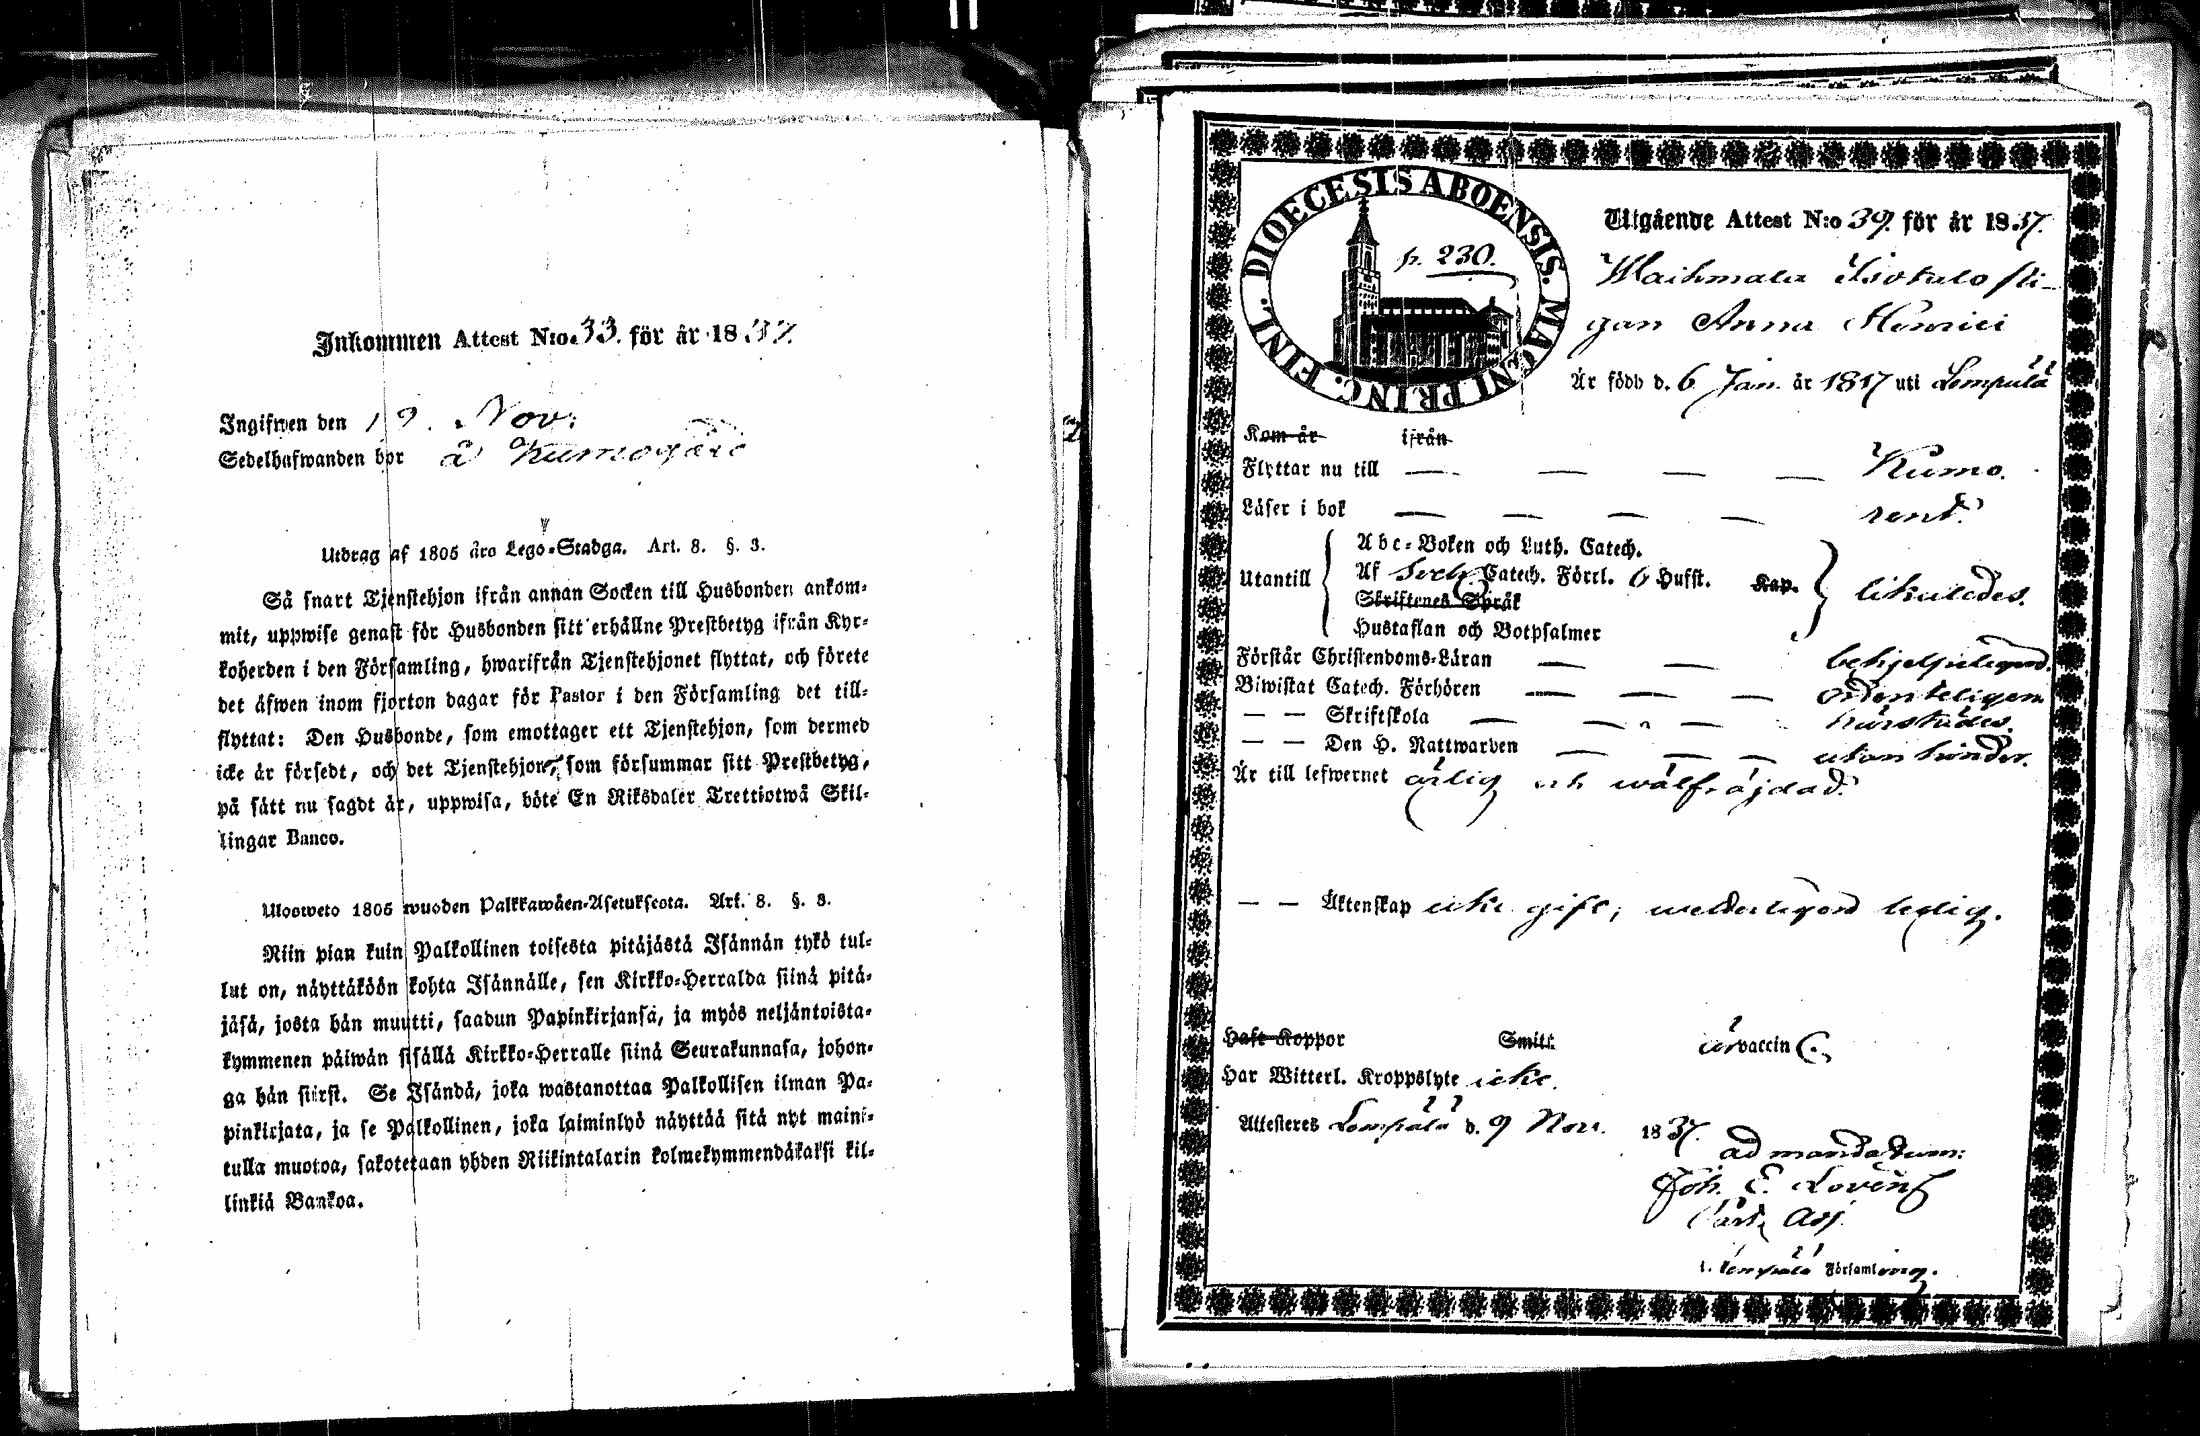 Inkommen Attest N:o 33. för år 1837.
Ingifwen den 19. Nov:
Sedelhafwanden bor å Kumogård
Utdrag af 1805 års Lego-Stadga. Art. 8. §. 3.
Så snart Tjenstehjon ifrån annan Socken till Husbonden ankom-
mit, uppwise genast för Husbonden sitt erhållne Prestbetyg ifrån Kyr-
koherden i den Församling, hwarifrån Tjenstehjonet flyttat, och förete
det äfwen inom fjorton dagar för Pastor i den Församling det till-
flyttat: Den Husbonde, som emottager ett Tjenstehjon, som dermed
icke är försedt, och det Tjenstehjon, som försummar sitt Prestbetyg,
på sätt nu sagdt är, uppwisa, böte En Riksdaler Trettiotwå Skil-
lingar Banco.
Ulosweto 1805 wuoden Palkkawäen-Asetuksesta. Art. 8. §. 3.
Niin pian kuin Palkollinen toisesta pitäjästä Isännän tykö tul-
lut on, näyttäköön kohta Isännälle, sen Kirkko-Herralda siinä pitä-
jäsä, josta hän muutti, saadun Papinkirjansa, ja myös neljäntoista-
kymmenen päiwän sisällä Kirkko-Herralle siinä Seurakunnasa, johon-
ga hän siirst. Se Isändä, joka wastanottaa Palkollisen ilman Pa-
pinkirjata, ja se Palkollinen, joka laiminlyö näyttää sitä nyt maini-
tulla muotoa, sakotetaan yhden Riikintalarin kolmekymmendäkaksi kil-
linkiä Bankoa.
DIOECESIS ABOENSIS. MAGNI PRINC. FINL.
p. 230.
Utgående Attest N:o 39. för år 1837.
Waihmala Isotalo pi-
gan Anna Henrici
Är född d. 6 Jan. år 1817 uti Lempälä
Kom år ifrån
Flyttar nu till — — — — Kumo.
Läser i bok — — — — rent.
Utantill
Abc-Boken och Luth. Catech.
Af Catech. Förkl. 6 Hufst. Kap.
Skriftenes Språk
Hustaflan och Botpsalmer
likaledes.
Förstår Christendoms-Läran — — behjelpeligen.
Biwistat Catech. Förhören — — — ordenteligen
— — Skriftskola — — — härstädes.
— — Den H. Nattwarden — — — utan hinder.
Är till lefwernet ärlig och wälfräjdad.
— — Äktenskap icke gift; ledig.
Haft Koppor Smitt är vaccin.
Har Witterl. Kroppslyte icke.
Attesteres Lempälä d. 9 Nov. 1837.
ad mandatum:
Joh. E. Lovén
Adj.
i Lempälä Församling.